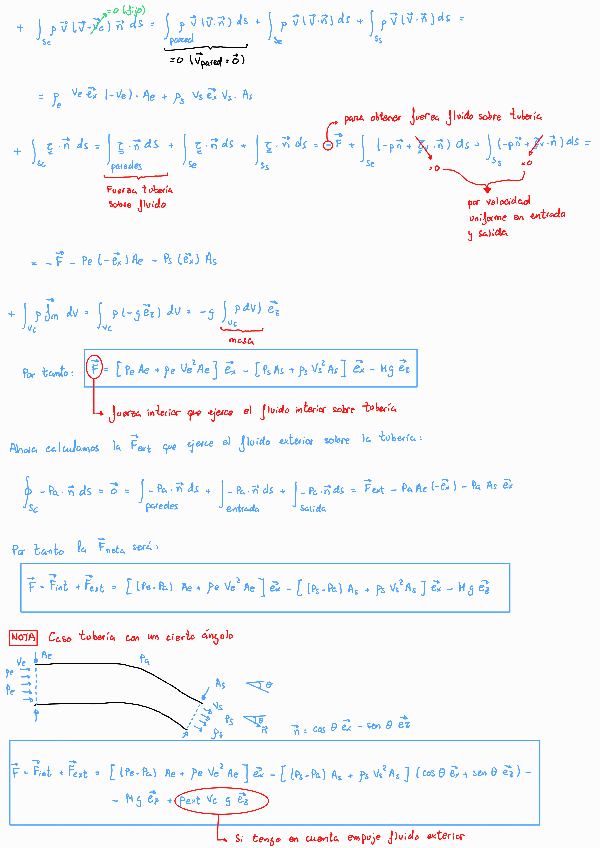 =0 (fijo)
+ ∫_Sc ρ v⃗ (v⃗ - v⃗c) n⃗ ds = ∫_pared ρ v⃗ (v⃗·n⃗) ds + ∫_Se ρ v⃗ (v⃗·n⃗) ds + ∫_Ss ρ v⃗ (v⃗·n⃗) ds =
=0 (v⃗pared = 0⃗)
= ρe Ve e⃗x (-Ve) · Ae + ρs Vs e⃗x Vs · As
para obtener fuerza fluido sobre tubería
+ ∫_Sc τ · n⃗ ds = ∫_paredes τ · n⃗ ds + ∫_Se τ · n⃗ ds + ∫_Ss τ · n⃗ ds = - F⃗ + ∫_Se (-p n⃗ + τv · n⃗) ds + ∫_Ss (-p n⃗ + τv · n⃗) ds =
=0 =0
Fuerza tubería
sobre fluido
por velocidad
uniforme en entrada
y salida
= - F⃗ - Pe (-e⃗x) Ae - Ps (e⃗x) As
+ ∫_Vc ρ f⃗m dV = ∫_Vc ρ (-g e⃗z) dV = -g ∫_Vc ρ dV) e⃗z
masa
Por tanto: F⃗ = [Pe Ae + ρe Ve² Ae] e⃗x - [Ps As + ρs Vs² As] e⃗x - Mg e⃗z
fuerza interior que ejerce el fluido interior sobre tubería
Ahora calculamos la F⃗ext que ejerce el fluido exterior sobre la tubería:
∮_Sc -Pa · n⃗ ds = 0⃗ = ∫_paredes -Pa · n⃗ ds + ∫_entrada -Pa · n⃗ ds + ∫_salida -Pa · n⃗ ds = F⃗ext - Pa Ae (-e⃗x) - Pa As e⃗x
Por tanto la F⃗neta será:
F⃗ = F⃗int + F⃗ext = [(Pe-Pa) Ae + ρe Ve² Ae] e⃗x - [(Ps-Pa) As + ρs Vs² As] e⃗x - Mg e⃗z
NOTA Caso tubería con un cierto ángulo
Ve Ae Pa
ρe
Pe
As θ
Vs
Ps θ
n⃗
ρs
n⃗ = cos θ e⃗x - sen θ e⃗z
F⃗ = F⃗int + F⃗ext = [(Pe-Pa) Ae + ρe Ve² Ae] e⃗x - [(Ps-Pa) As + ρs Vs² As] (cos θ e⃗x + sen θ e⃗z) -
- Mg e⃗z + ρext Vc g e⃗z
Si tengo en cuenta empuje fluido exterior